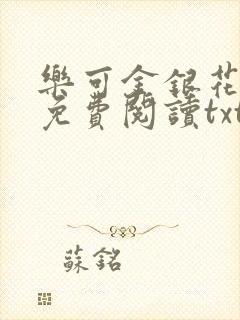 樂可金銀花
免費閱讀txt
蘇銘